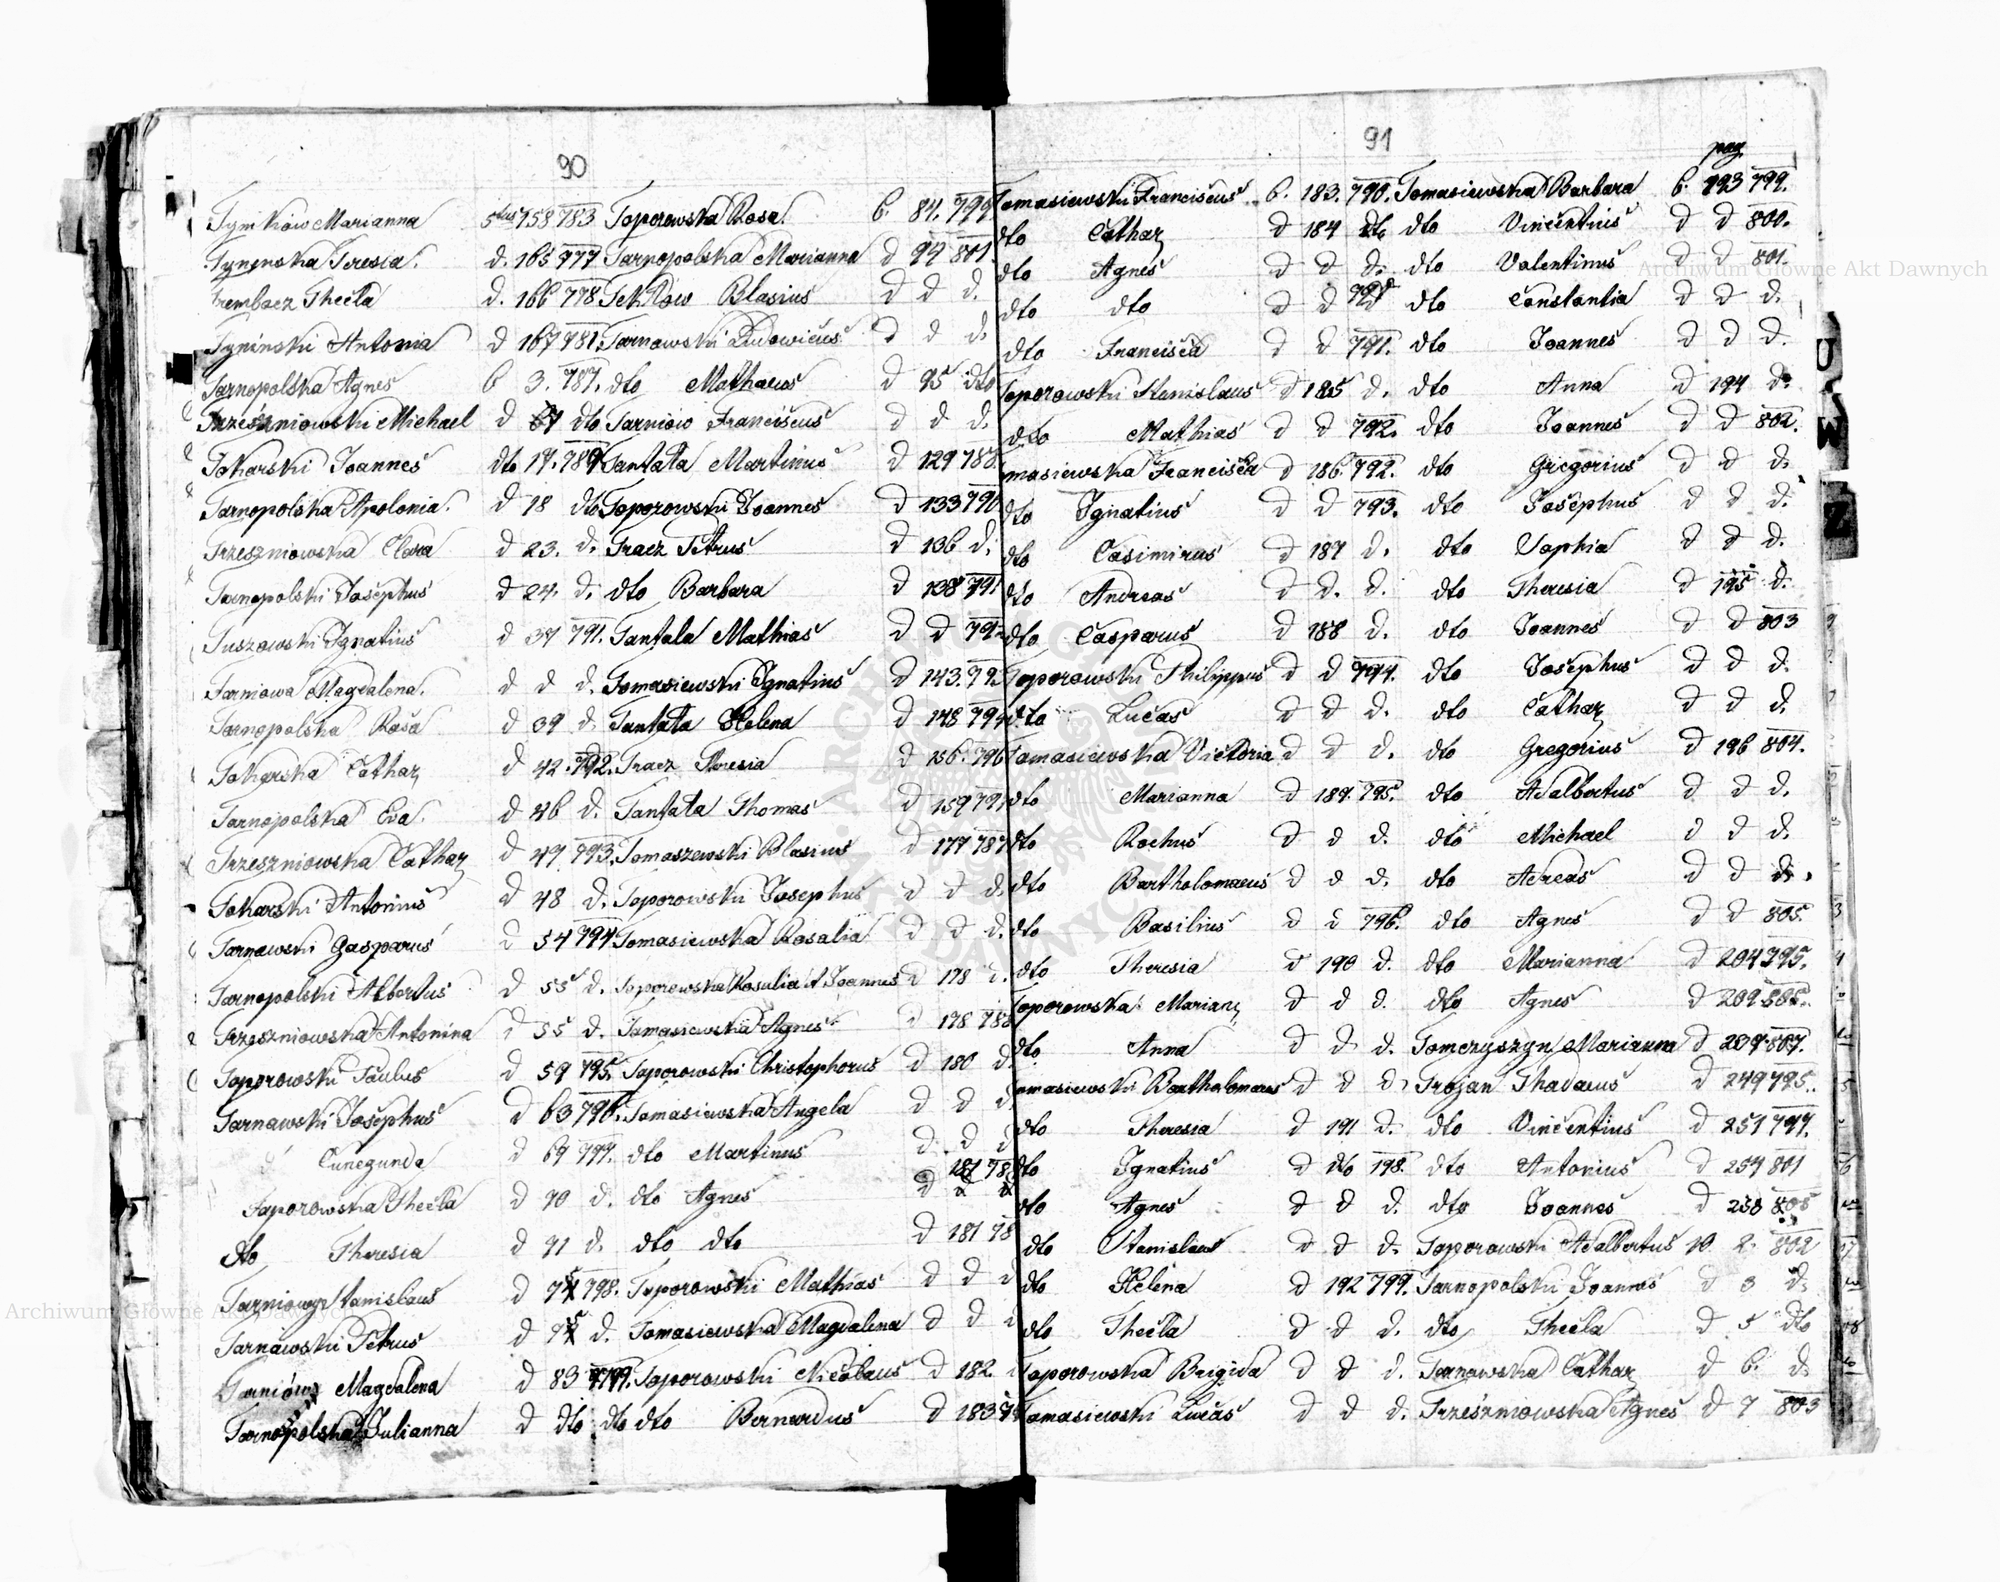 90
Tymków Marianna 5tus 158 783
Tynenska Teresia d. 165 777
Trembacz Thecla d. 166 778
Tyninski Antonia d 167 781
Tarnopolska Agnes 6 3. 787.
Trzeszniowski Michael d dto
Tokarski Joannes dto 17. 789
Tarnopolska Apolonia d 18 dto
Trzeszniowska Clara d 23. d.
Tarnopolski Josephus d 24. d.
Tuszowski Ignatius d 37 791.
Tarniowa Magdalena. d d d.
Tarnopolska Rosa d 39 d.
Tokarska Cathar d 42. 792.
Tarnopolska Eva. d 46 d.
Trzeszniowska Cathar d 47 793.
Tokarski Antonius d 48 d.
Tarnawski Gasparus d 54 794
Tarnopolski Albertus d 55 d.
Trzeszniowska Antonina d 55 d.
Toporowski Paulus d 59 795.
Tarnawski Josephus d 63 796.
Cunegunda d 69 797.
Toporowska Thecla d 70 d.
dto Theresia d 71 d.
Tarniowy Stanislaus d 798.
Tarnawski Petrus d d.
Tarniów Magdalena d 83 799.
Tarnopolska Julianna d dto dto
Toporowska Rosa. 6. 84. 799
Tarnopolska Marianna d 94 801.
Blasius d d d.
Tarnawski Ludovicus d d d.
dto Mathaeus d 95 dto
Tarniów Franciscus d d d.
Tantala Martinus d 129 788.
Toporowski Joannes d 133 790
Tracz Petrus d 136 d.
dto Barbara d 138 791
Tantala Mathias d d 792
Tomasiewski Ignatius d 143. 793
Tantala Helena d 148 794
Tracz Theresia d 156. 796
Tantala Thomas d 159 797
Tomaszewski Blasius d 177 787
Toporowski Josephus d d d.
Tomasiewska Rosalia d d d.
Toporowska Rosalia A Joannes d 178 d.
Tomasiewska Agnes d 178 788
Toporowski Christophorus d 180 d.
Tomasiewska Angela d d d
dto Martinus d. d d
dto Agnes d
dto dto d 181 78
Toporowski Mathias d d d
Tomasiewska Magdalena d d d
Toporowski Nicolaus d 182.
dto Bernardus d 183
91
Tomasiewski Franciscus 6. 183. 790.
dto Cathar d 184 dto
dto Agnes d d d.
dto dto d d
dto Francisca d d 791.
Toporowski Stanislaus d 185 d.
dto Mathias d d 792.
Tomasiewska Francisca d 186. 792.
dto Ignatius d d 793.
dto Casimirus d 187 d.
dto Andreas d d. d.
dto Casparus d 188 d.
Toporowski Philippus d d 794.
dto Lucas d d d.
Tomasiewska Victoria d d d.
dto Marianna d 189. 795.
dto Rochus d d d.
dto Bartholomaeus d d d.
dto Basilius d d 796.
dto Theresia d 190 d.
Toporowska Mariann d d d.
dto Anna d d d.
Tomasiewski Bartholomaeus d d d.
dto Theresia d 191 d.
dto Ignatius d dto 198.
dto Agnes d d d.
dto Stanislaus d d d.
dto Helena d 192 799.
dto Thecla d d d.
Toporowska Brigida d d d.
Tomasiewski Lucas d d d.
pag
Tomasiewska Barbara 6. 193 799.
dto Vincentius d d 800.
dto Valentinus d d 801.
dto Constantia d d d.
dto Joannes d d d.
dto Anna d 194 d.
dto Joannes d d 802.
dto Gregorius d d d.
dto Josephus d d d.
dto Sophia d d d.
dto Theresia d 195 d.
dto Joannes d d 803
dto Josephus d d d.
dto Cathar d d d.
dto Gregorius d 196 804.
dto Adalbertus d d d.
dto Michael d d d.
dto Adreas d d d.
dto Agnes d d 805.
dto Marianna d 204 795.
dto Agnes d 209 805.
Tomczyszyn Marianna d 239 807.
Trojan Thadaeus d 249 795.
dto Vincentius d 251 797.
dto Antonius d 254 801
dto Joannes d 258 805
Toporowski Adalbertus 10 2. 802
Tarnopolski Joannes d 3 d.
dto Thecla d 5 dto
Tarnawska Cathar d 6. d.
Trzeszniowska Agnes d 7 803
Archiwum Główne Akt Dawnych
Archiwum Główne Akt Dawnych